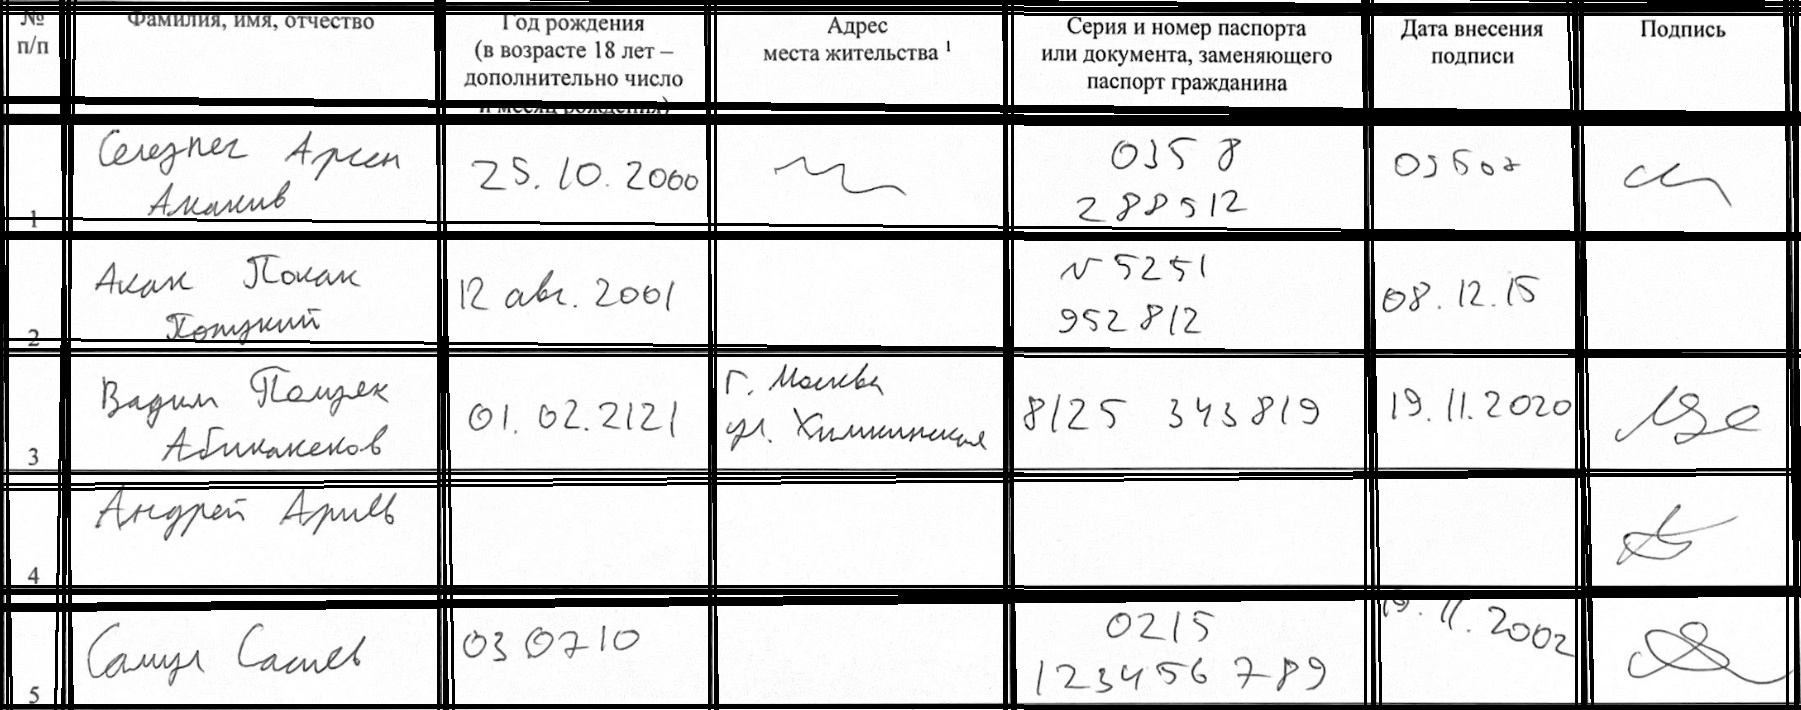 №
п/п
Фамилия, имя, отчество
Год рождения
(в возрасте 18 лет –
дополнительно число
и месяц рождения)
Адрес
места жительства 1
Серия и номер паспорта
или документа, заменяющего
паспорт гражданина
Дата внесения
подписи
Подпись
1
Арсен
25.10.2000
0358
288512
2
Акак Покак
12 авг. 2001
N 5251
952812
08.12.15
3
Вадим
01.02.2121
г. Москва
ул. Химкинская
8125 343819
19.11.2020
4
Андрей
5
03 07 10
0215
123456 789
19.11.2002